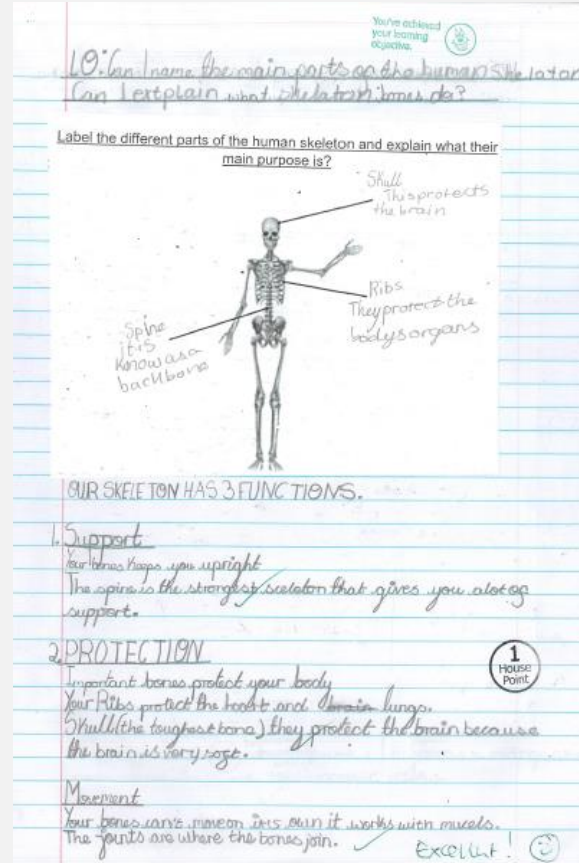 You've achieved
your learning
objective.
LO: Can I name the main parts of the human skelaton
Can I extplain what skelatron bones do?
Label the different parts of the human skeleton and explain what their
main purpose is?
Skull
This protects
the brain
Ribs
They protect the
bodys organs
Spine
it is
Know as a
backbone
OUR SKELETON HAS 3 FUNCTIONS.
1. Support
Your bones keeps you upright
The spine is the strongest sceleton that gives you alot of
support.
2. PROTECTION
1
House
Point
Important bones protect your body
Your Ribs protect the heart and brain lungs.
Skull (the toughest bone) they protect the brain because
the brain is very soft.
Movement
Your bones can't move on it's own it works with mucels.
The joints are where the bones join.
Excellent!